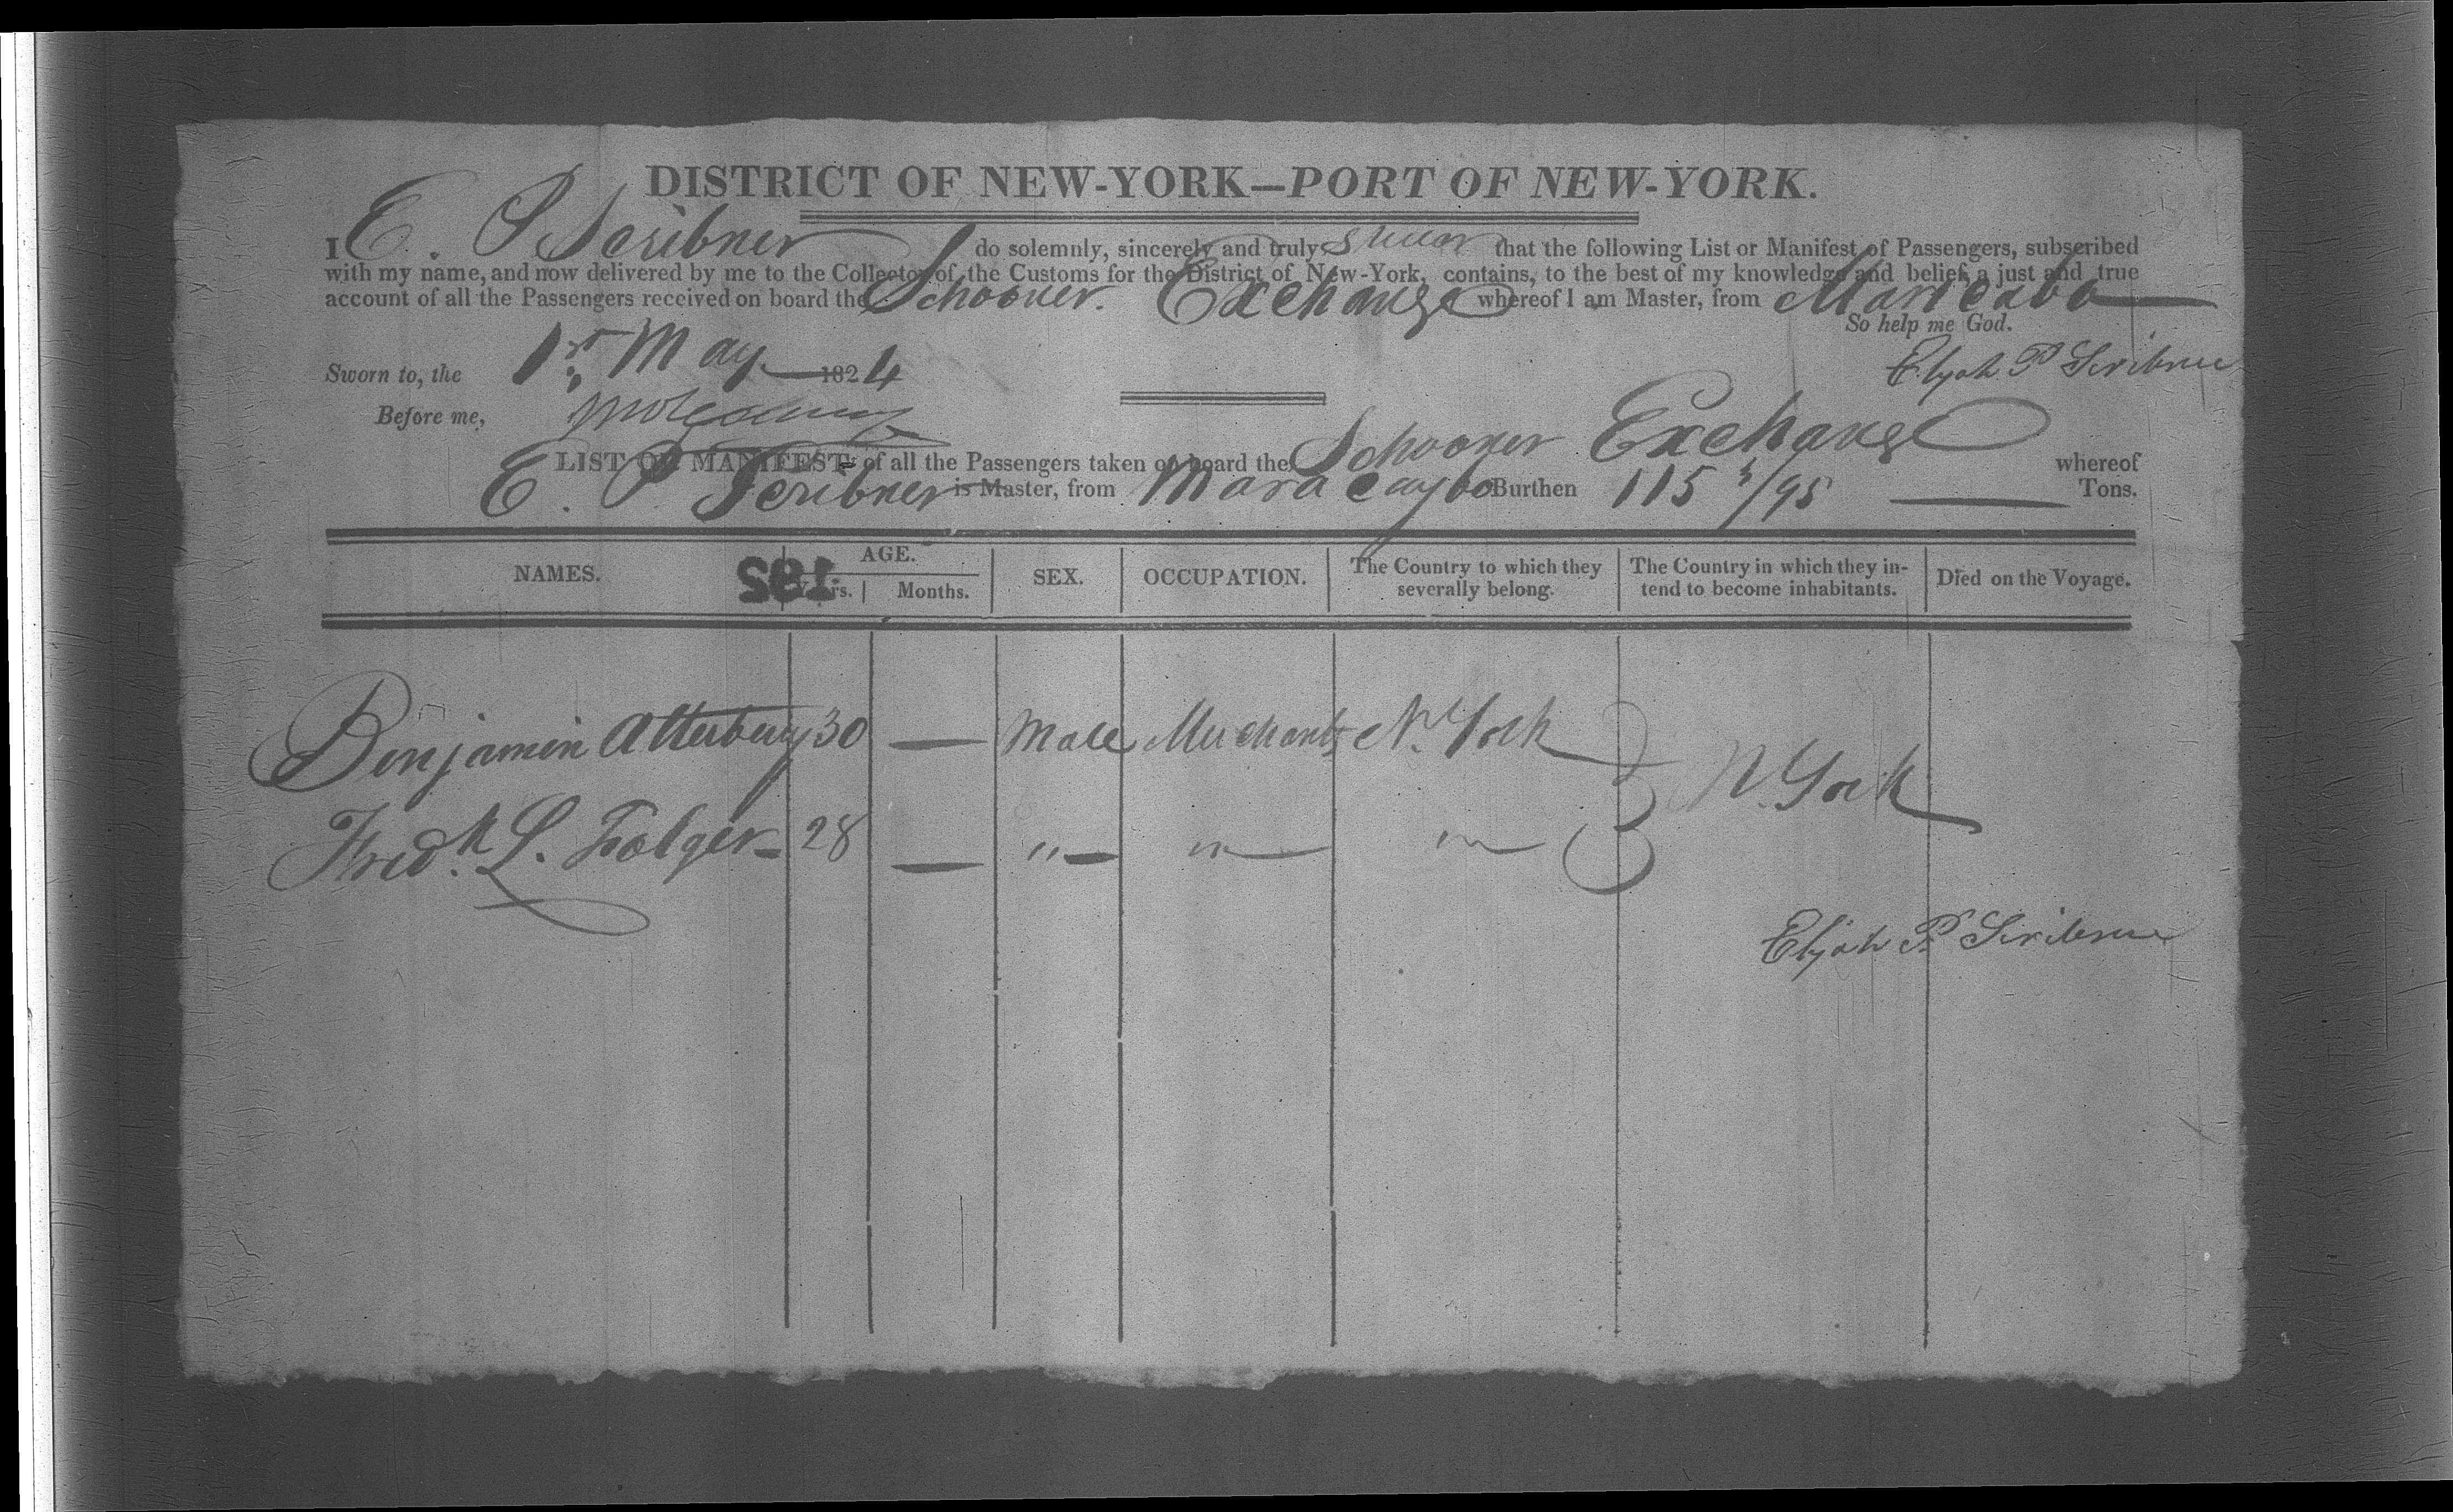 DISTRICT OF NEW-YORK—PORT OF NEW-YORK.
I E. P Scribner do solemnly, sincerely and truly swear that the following List or Manifest of Passengers, subscribed
with my name, and now delivered by me to the Collector of the Customs for the District of New-York, contains, to the best of my knowledge and belief, a just and true
account of all the Passengers received on board the Schooner. Exchange whereof I am Master, from Maricabo
So help me God.
Sworn to, the 1st May 1824
Elijah P Scribner
Before me,
LIST OR MANIFEST of all the Passengers taken on board the Schooner Exchange whereof
E. P. Scribner is Master, from Maracaybo Burthen 115 /95 Tons.
NAMES. AGE. SEX. OCCUPATION. The Country to which they severally belong. The Country in which they intend to become inhabitants. Died on the Voyage.
182 Years. Months.
Benjamin Atterbury 30 — Male Merchant N. York
N. York
Fredk. L. Folger - 28 — " — " — " —
Elijah P. Scribner